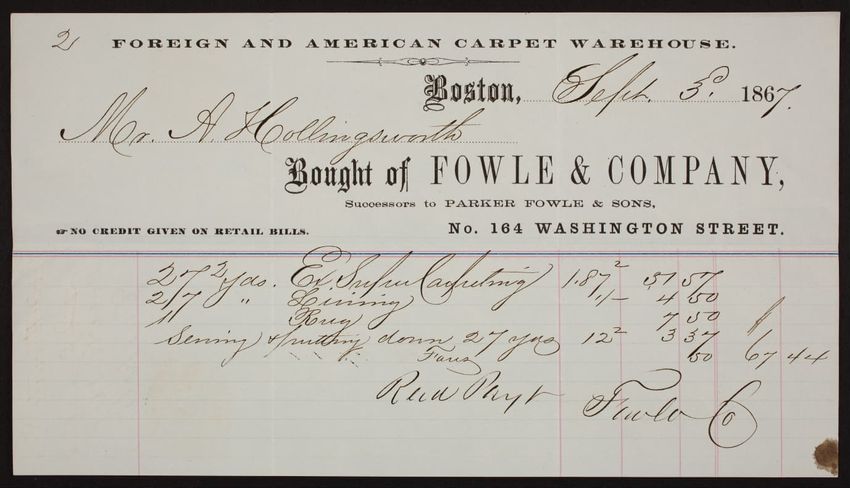 2
FOREIGN AND AMERICAN CARPET WAREHOUSE.
Boston, Sept. 3d. 1867.
Mr. A. Hollingsworth
Bought of FOWLE & COMPANY,
Successors to PARKER FOWLE & SONS,
☞ NO CREDIT GIVEN ON RETAIL BILLS. No. 164 WASHINGTON STREET.
27 2 yds. Ex. Super Carpeting 1.87 2 51 57
" Lining 4 50
Rug 7 50
Sewing & putting down 27 yds 12 2 3 37
50 67 44
Recd Payt Fowle Co